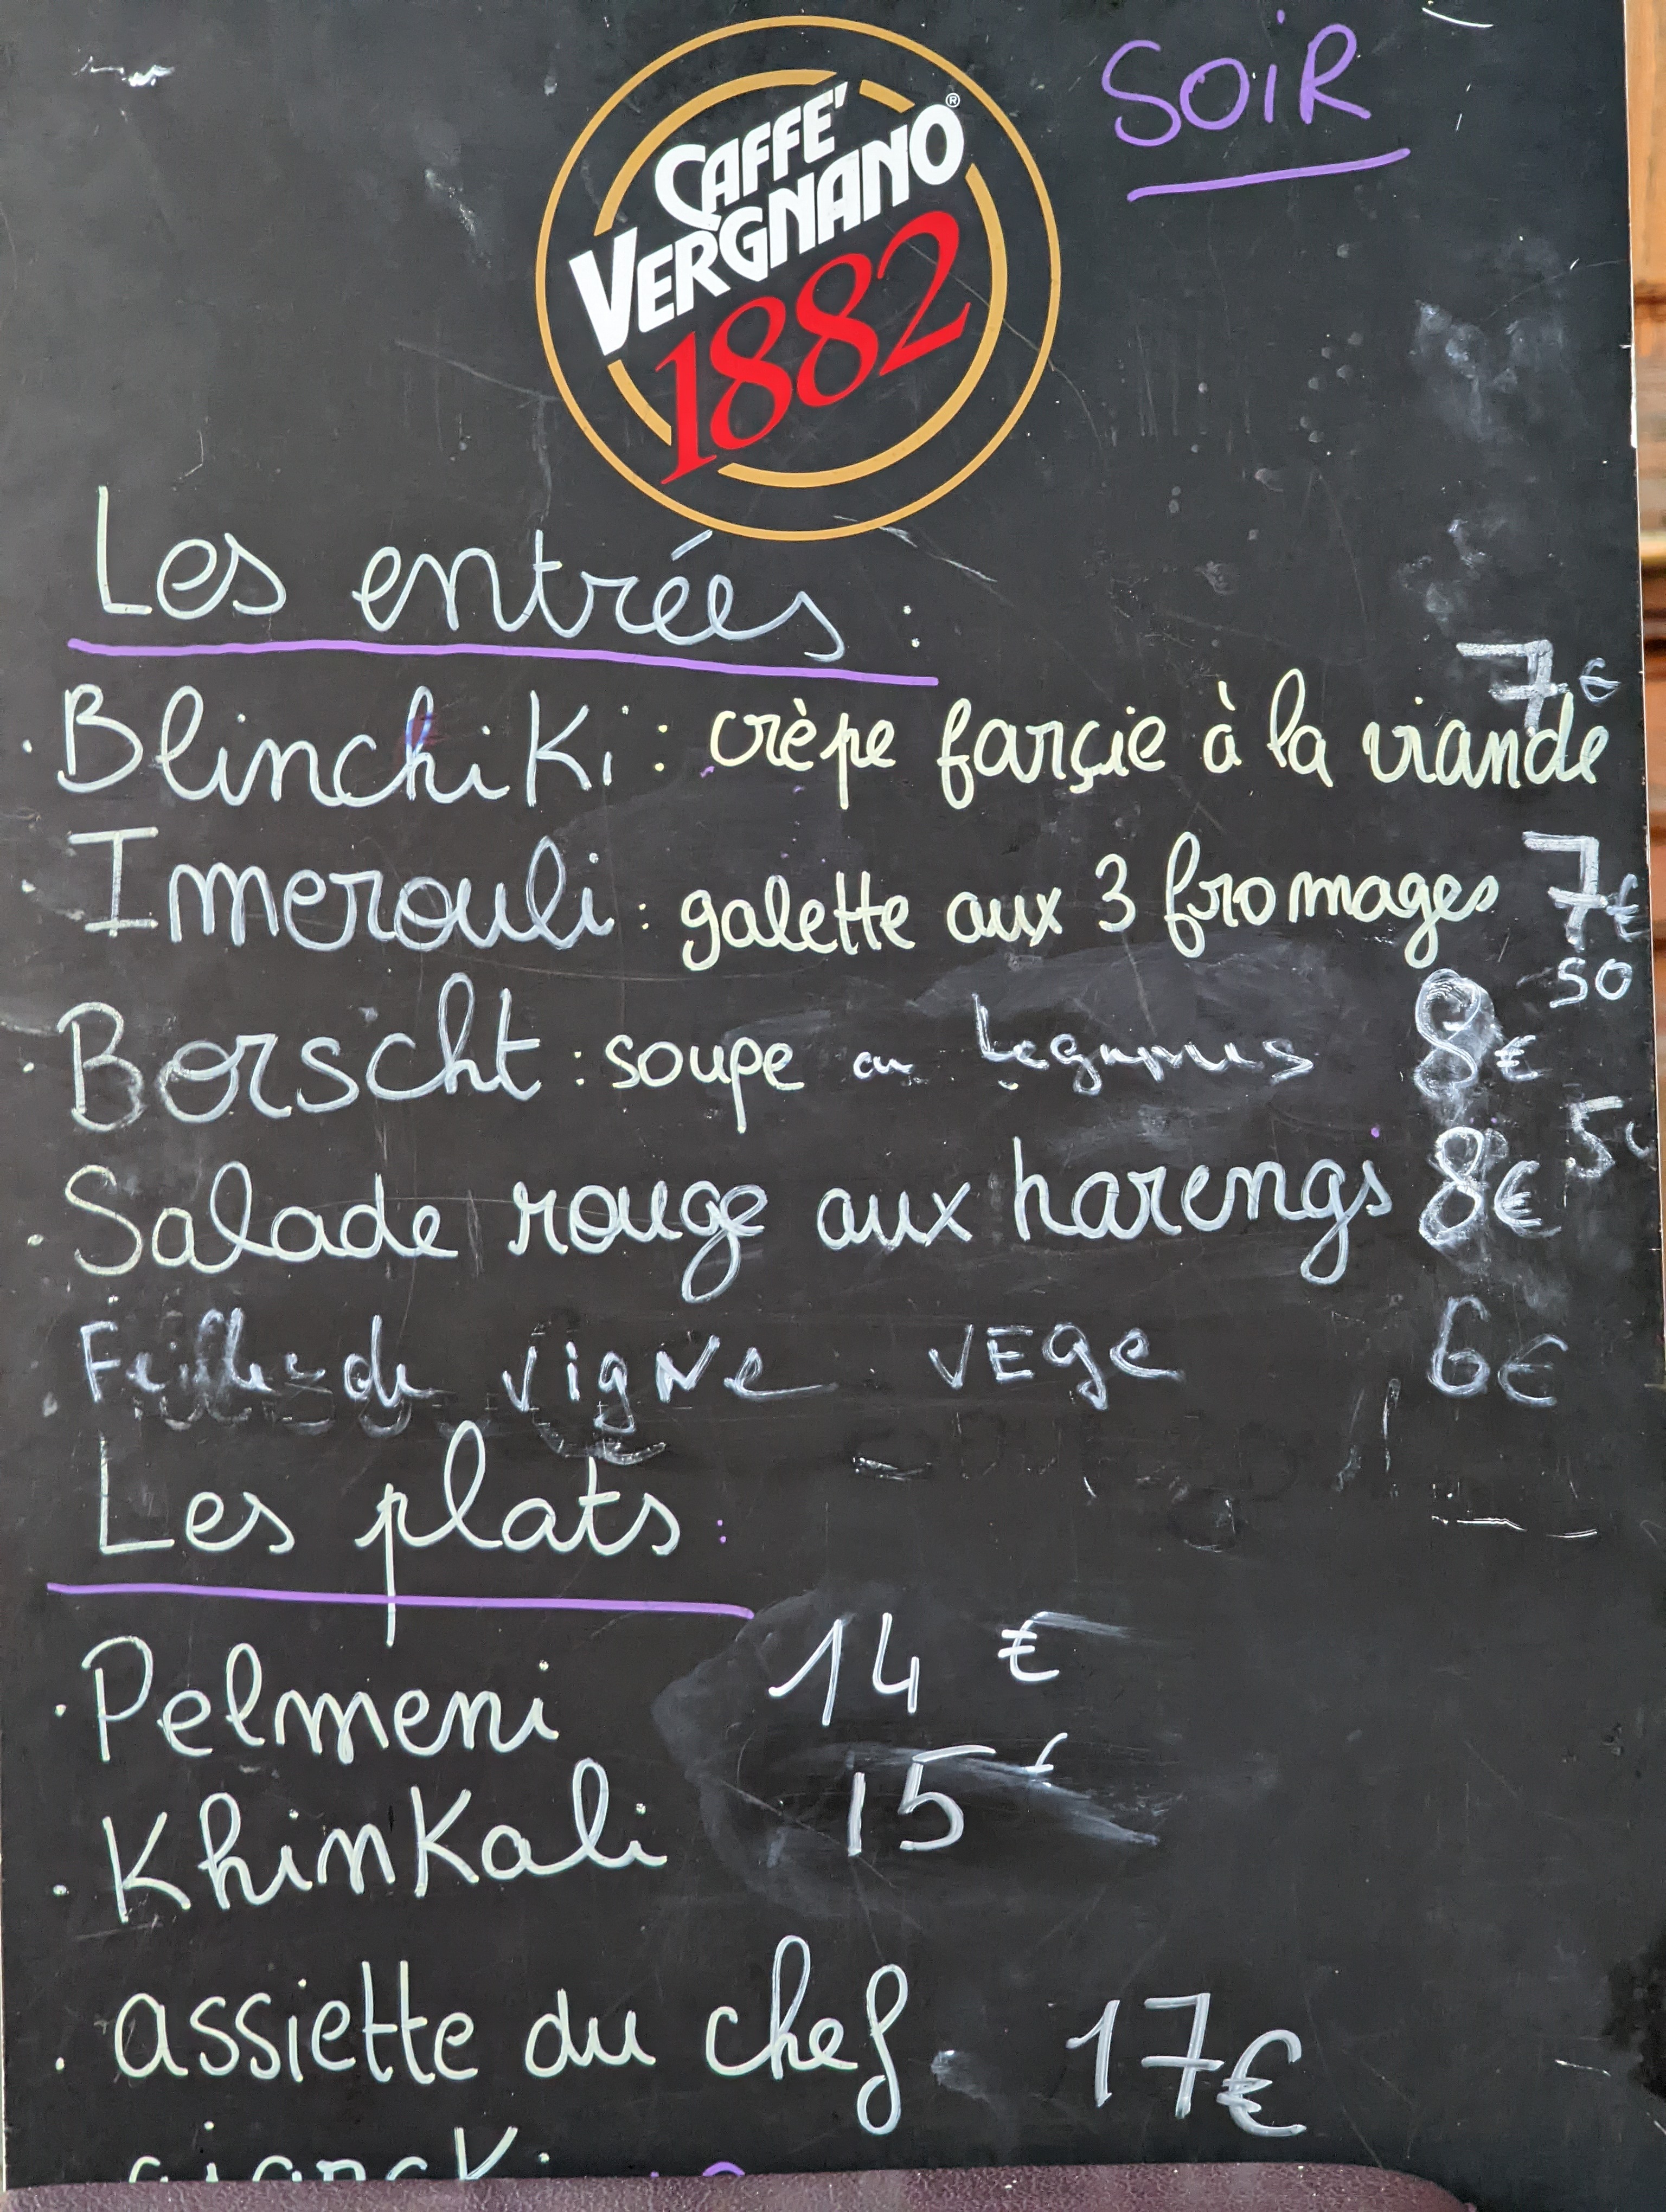 SOIR
CAFFE'
VERGNANO®
1882
Les entrées :
7€
· Blinchiki : crêpe farçie à la viande
· Imerouli : galette aux 3 fromages 7€
50
· Borscht : soupe au Legumes 8€
· Salade rouge aux harengs 8€ 50
· Feilles de vigne VEGE 6€
Les plats :
· Pelmeni 14 €
· Khinkali 15 €
· assiette du chef 17€